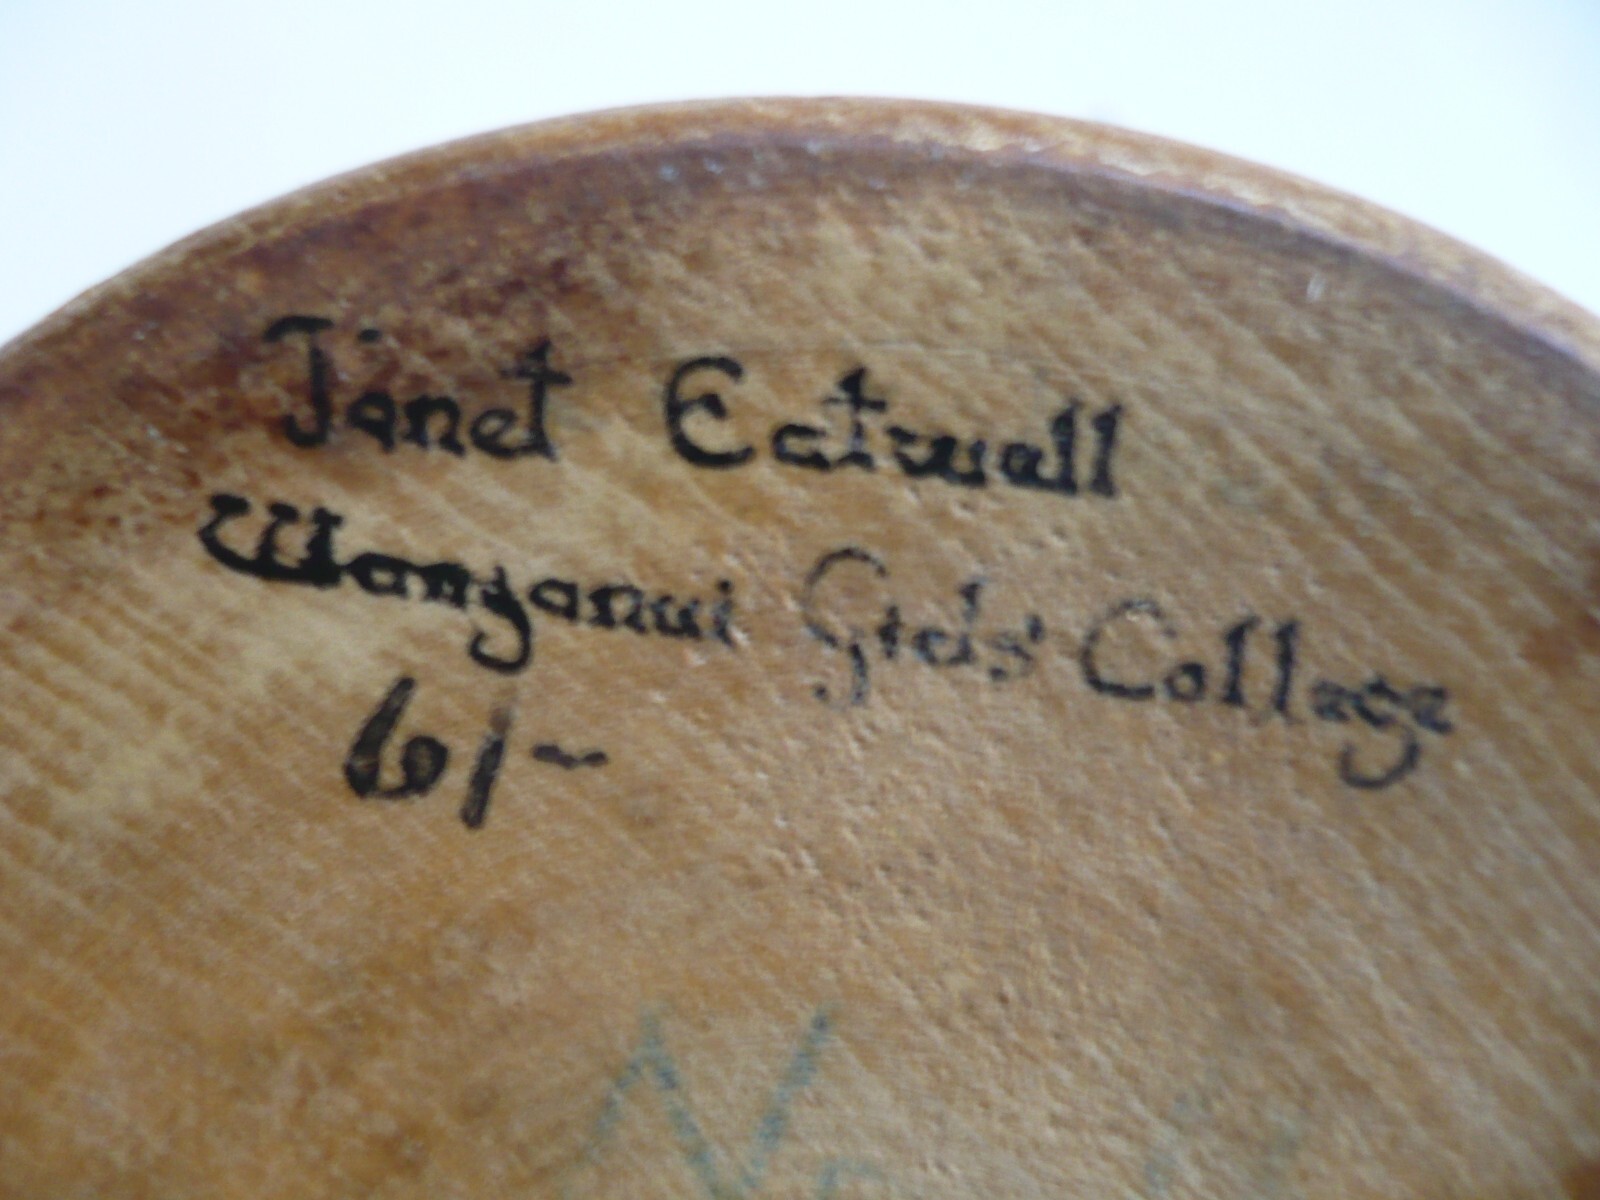 Janet Eatwall
Wanganui Girls' College
6/-
No